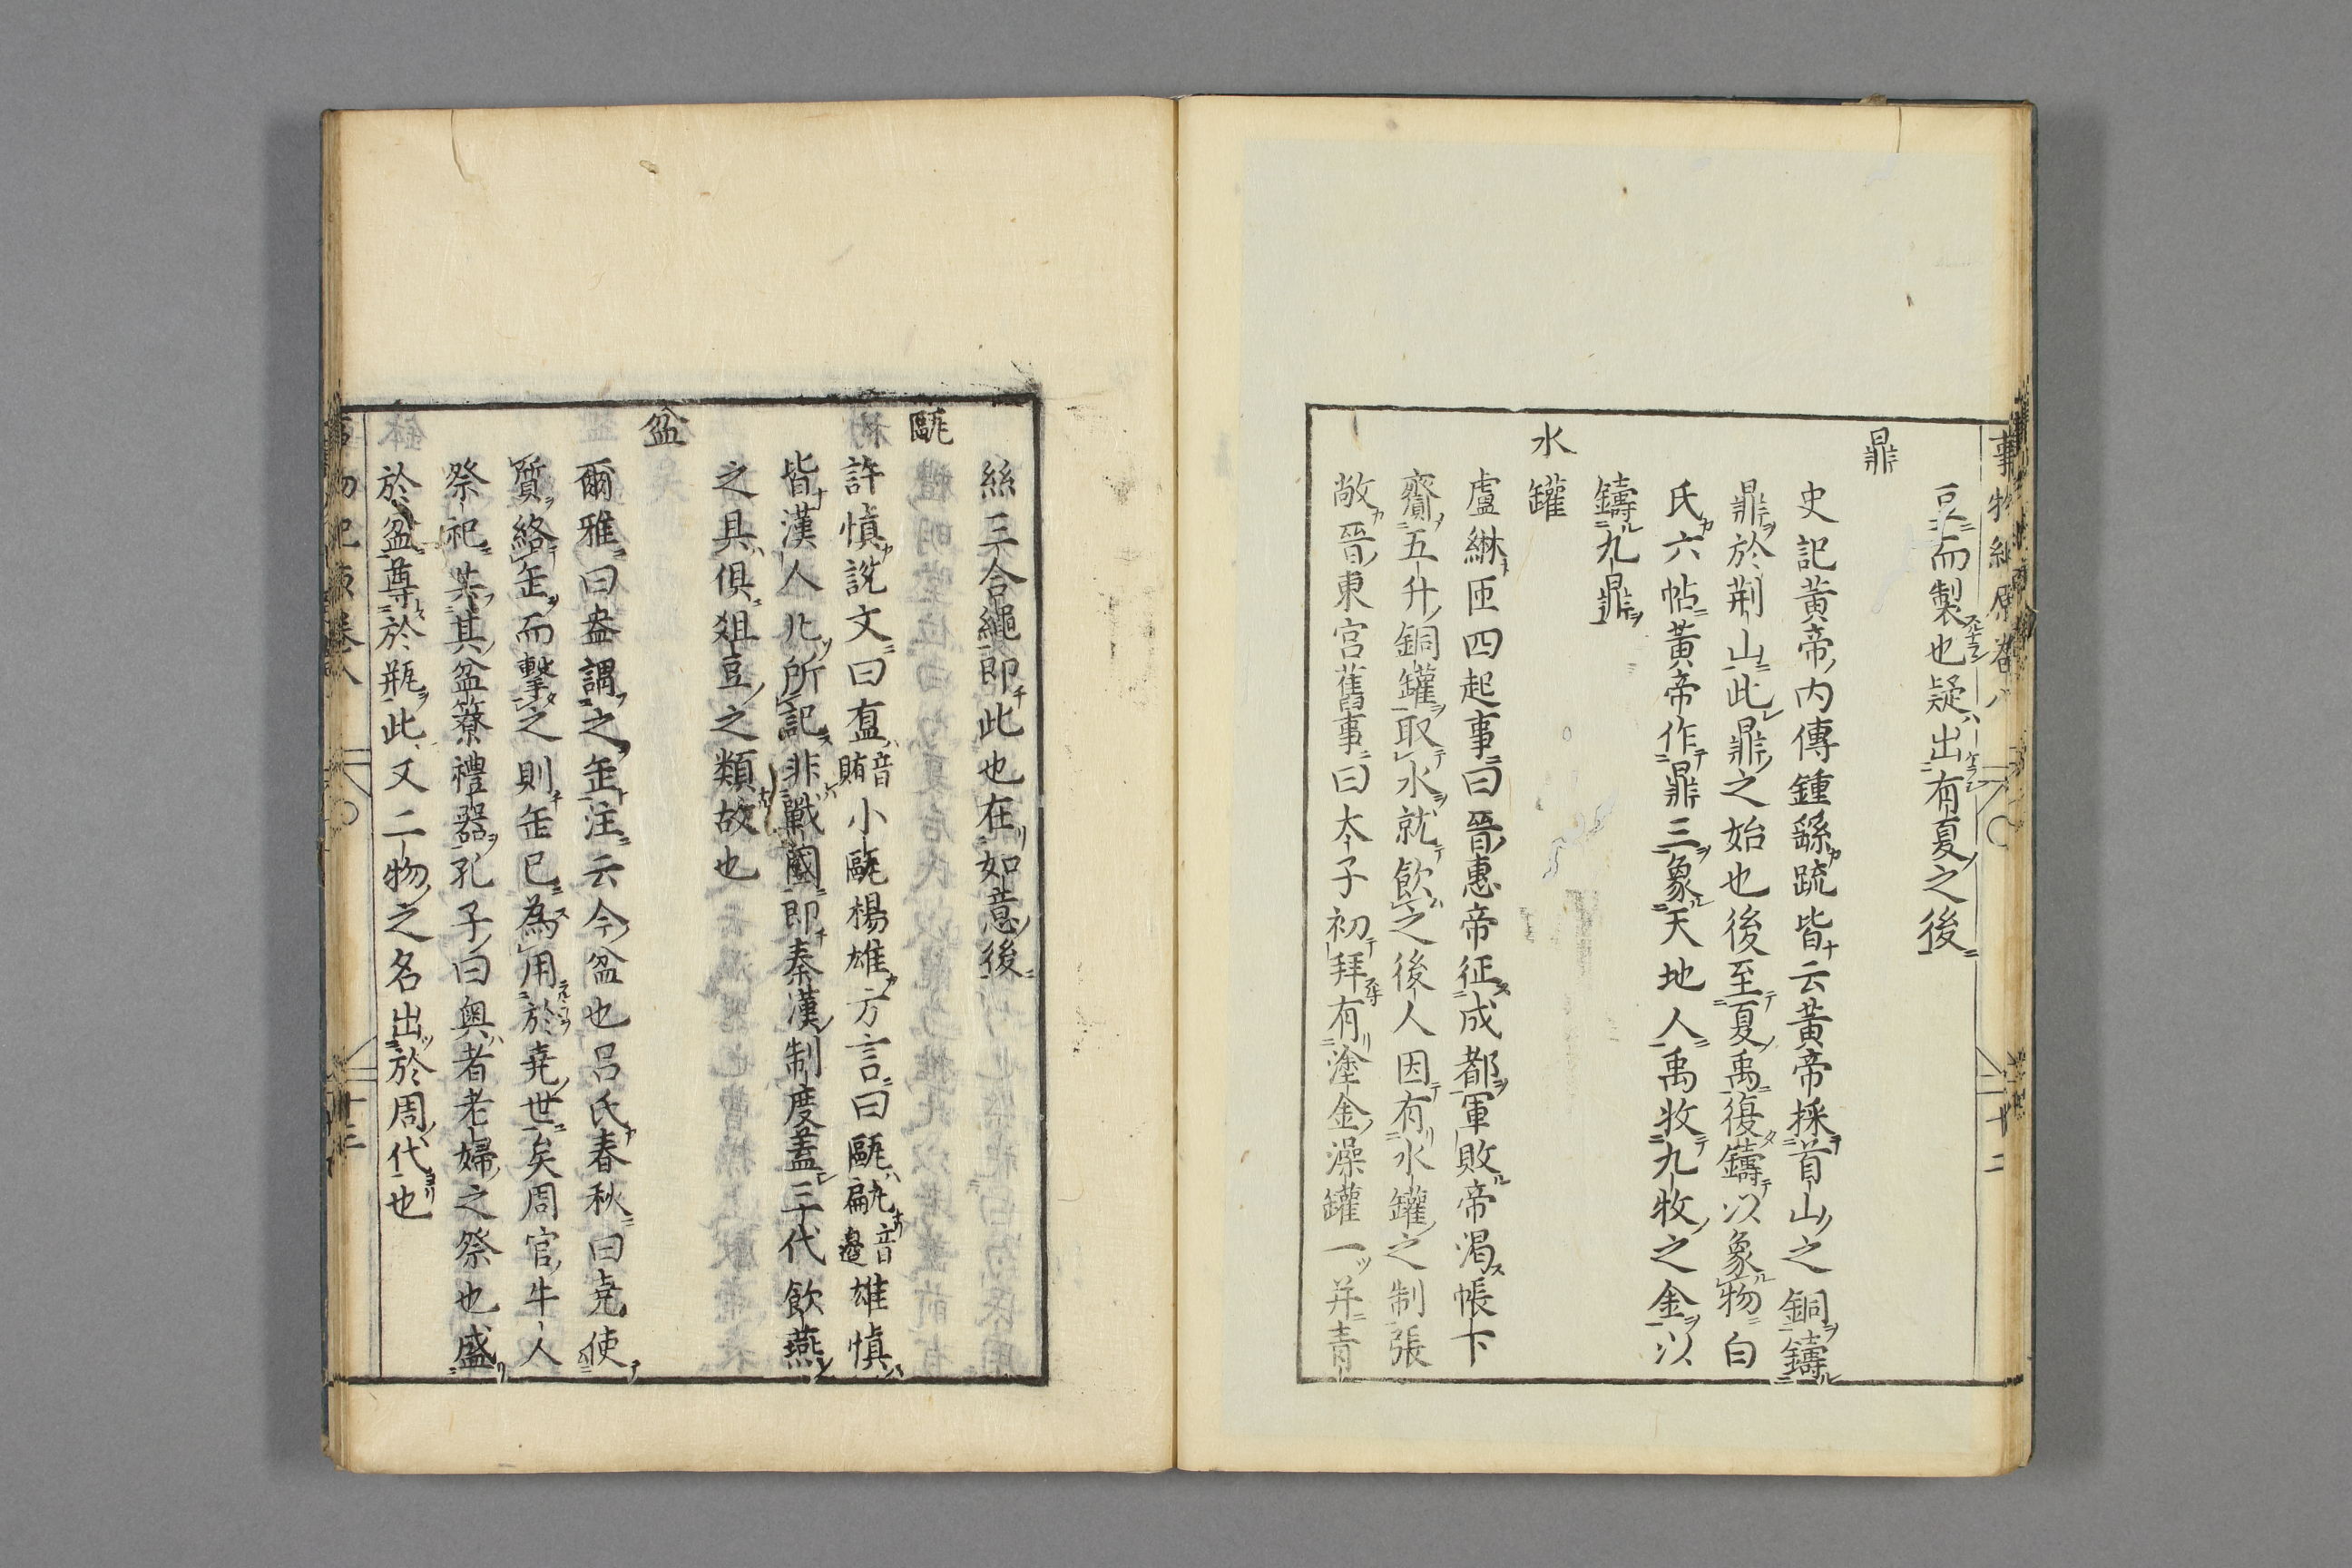 豆而製也疑出有夏之後
鼎
史記黃帝内傳鍾繇䟽皆云黃帝採首山之銅鑄
鼎於荆山此鼎之始也後至夏禹復鑄以象物白
氏六帖黃帝作鼎三象天地人禹牧九牧之金以
鑄九鼎
水罐
盧綝四起事曰晉惠帝征成都軍敗帝渴帳下
齎五升銅罐取水就飲之後人因有水罐之制張
敞晉東宮舊事曰太子初拜有塗金澡罐一并青
絲三合繩即此也在如意後
甌
許慎說文曰㿿音賄小甌楊雄方言曰甌𤬪音邊雄慎
皆漢人凡所記非戰國即秦漢制度蓋三代飲燕
之具俱俎豆之類故也
盆
爾雅曰盎謂之缶注云今盆也呂氏春秋曰堯使
質絡缶而擊之則缶已為用於堯世矣周官牛人
祭祀共其盆簝禮器孔子曰奥者老婦之祭也盛
於盆尊於瓶此又二物之名出於周代也